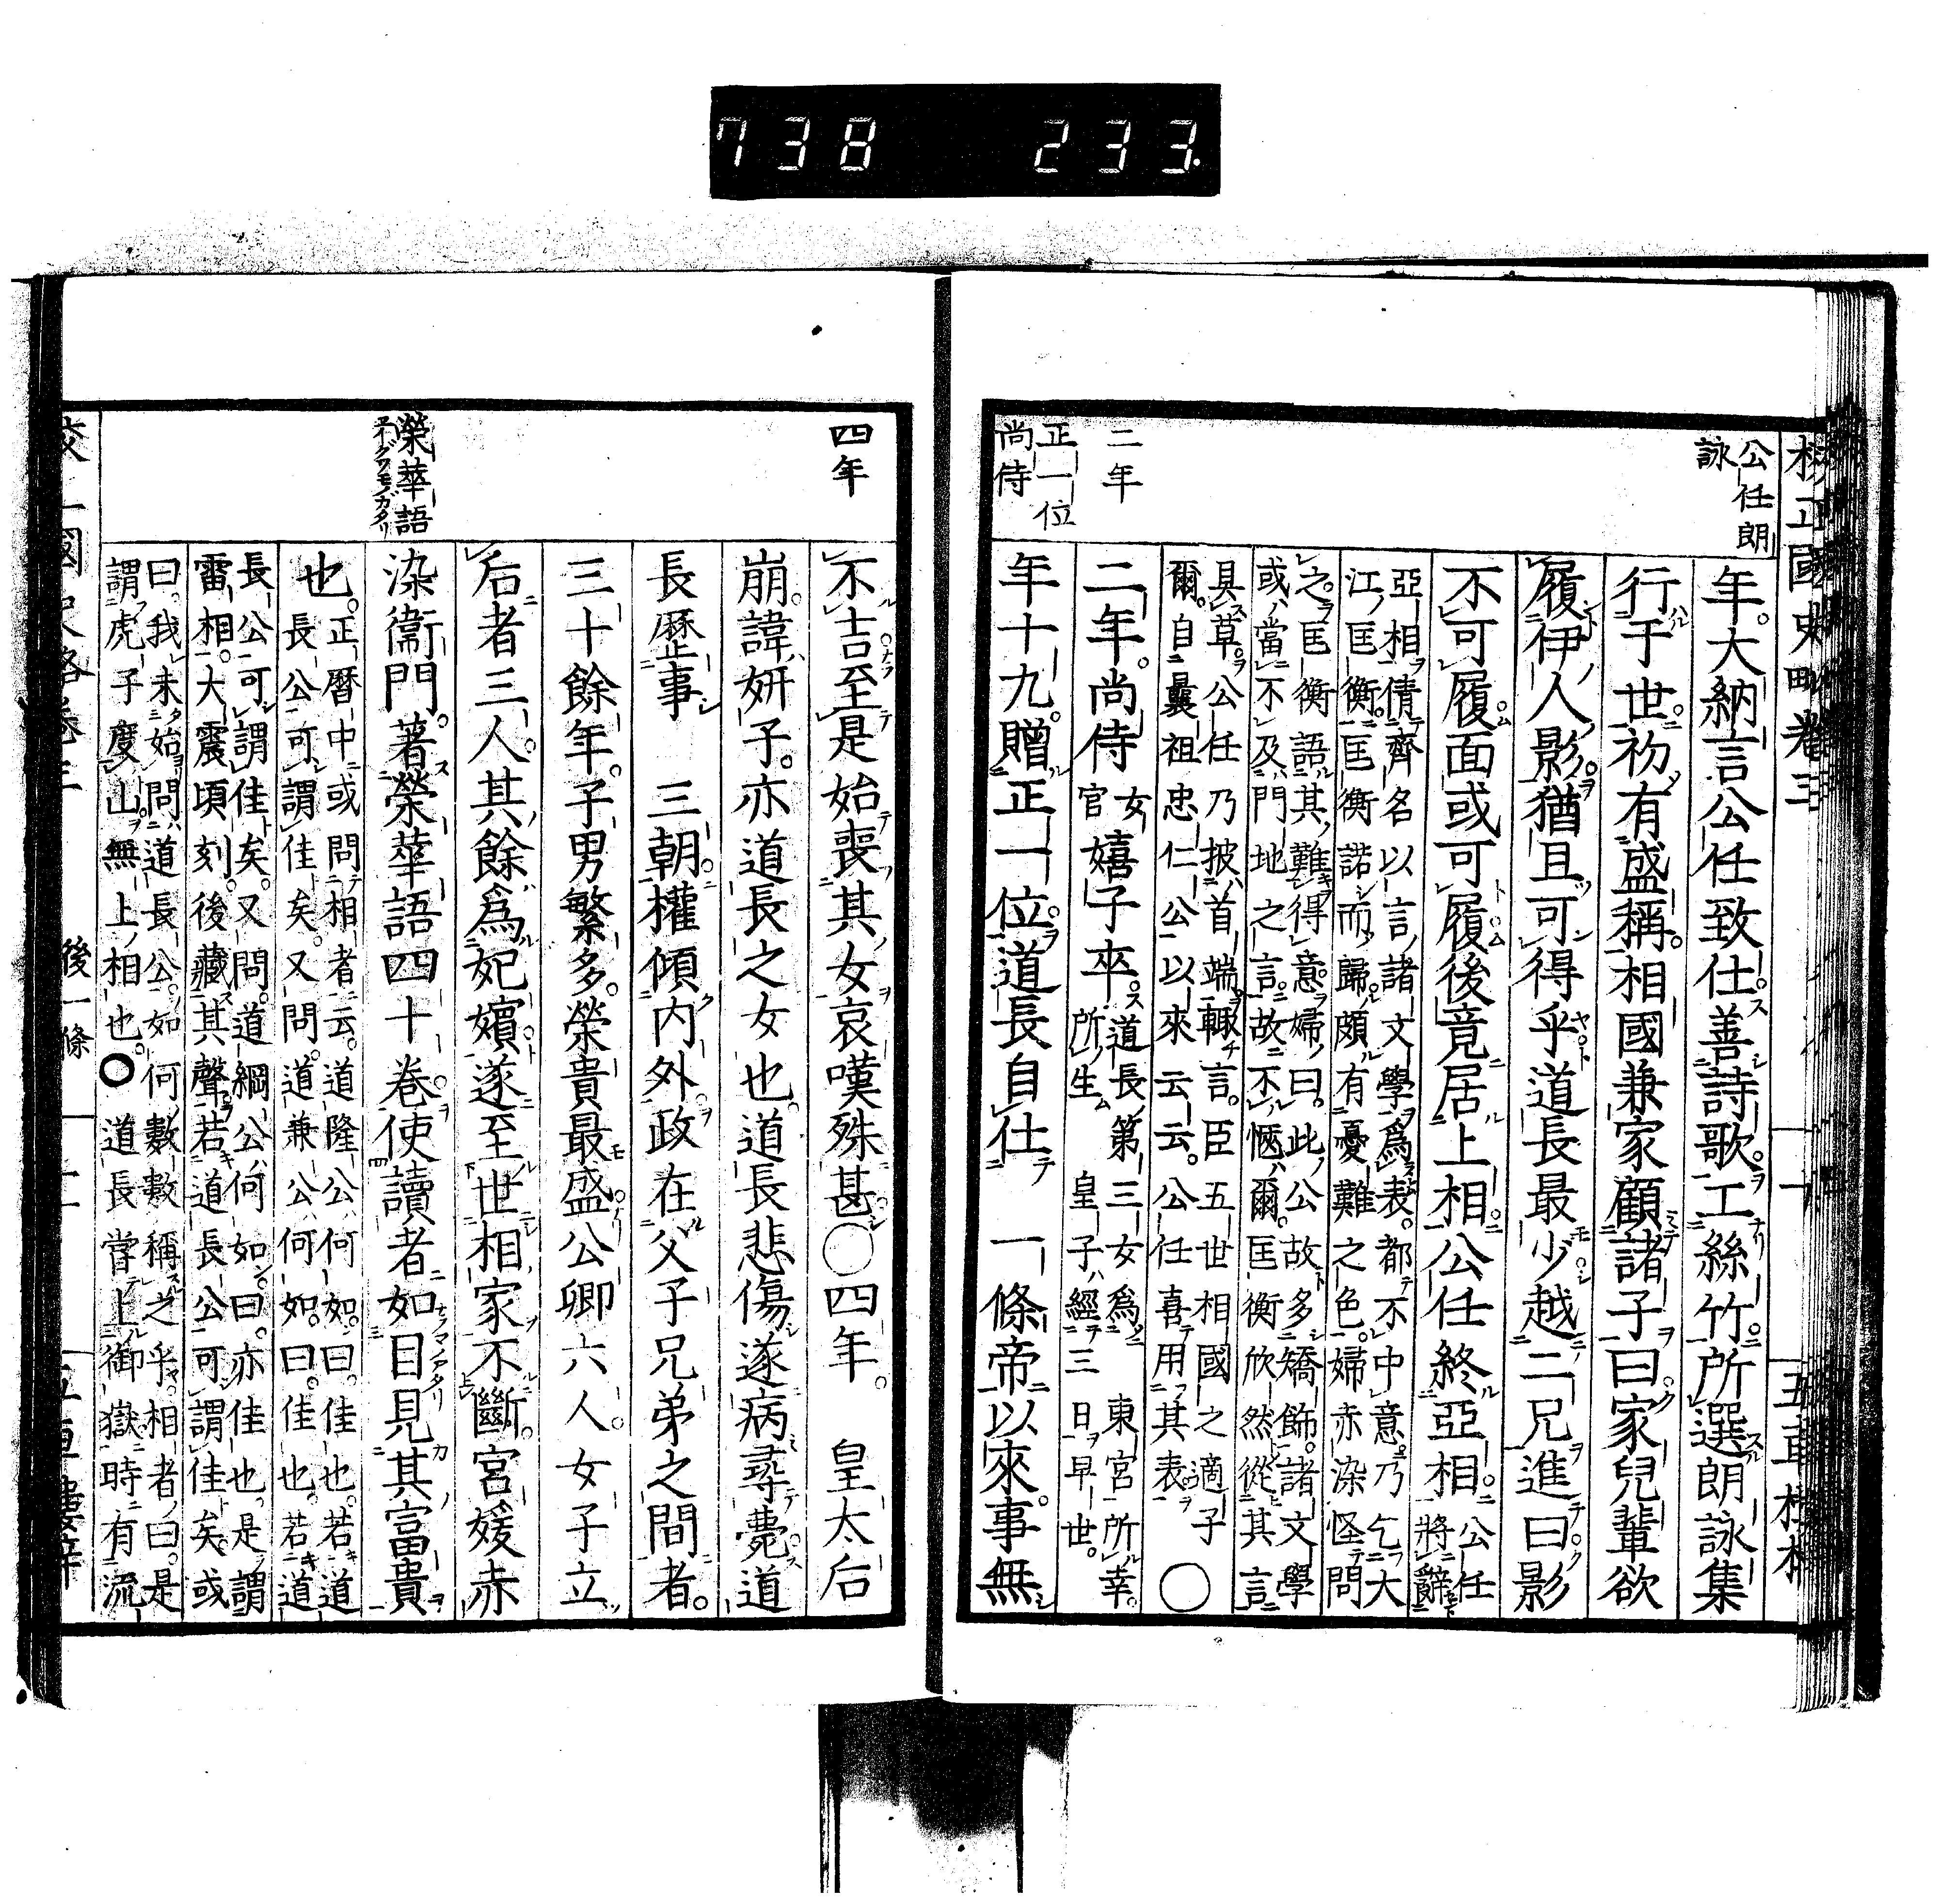 738 233.
校正國史略卷三
公任朗
詠
年。大納言公任致仕。善詩歌。工絲竹。所選朗詠集
行于世。初有盛稱。相國兼家顧諸子曰。家兒輩欲
履伊人影。猶且可得乎。道長最少。越二兄進曰。影
不可履。面或可履。後竟居上相。公任終亞相。公任
將辭
亞相。倩齊名以言諸文學爲表。都不中意。乃乞大
江匡衡。匡衡諾而歸。頗有憂難之色。婦赤染怪問
之。匡衡語其難得意。婦曰。此公故多矯飾。諸文學
或當不及門地之言。故不愜爾。匡衡欣然從其言
具草。公任乃披首端。輙言。臣五世相國之適子
爾。自曩祖忠仁公以來云云。公任喜用其表。○
二年
二年。尚侍女
官嬉子卒。道長第三女爲東宮所幸。
所生皇子經三日早世。
正一位
尚侍
年十九。贈正一位。道長自仕一條帝以來。事無
四年
不吉。至是始喪其女。哀嘆殊甚。○四年。皇太后
崩。諱妍子。亦道長之女也。道長悲傷。遂病尋薨。道
長歷事三朝。權傾內外。政在父子兄弟之間者。
三十餘年。子男繁多。榮貴最盛。公卿六人。女子立
后者三人。其餘爲妃嬪。遂至世相家不斷。宮媛赤
榮華語
染衞門。著榮華語四十卷。使讀者如目見其富貴
也。正曆中或問相者云。道隆公何如。曰。佳也。若道
長公可謂佳矣。又問。道兼公何如。曰。佳也。若道
長公可謂佳矣。又問。道綱公何如。曰。亦佳也。是謂
雷相。大震頃刻。後藏其聲。若道長公可謂佳矣。或
曰。我未始問道長公。如何數數稱之乎。相者曰。是
謂虎子度山。無上相也。○道長嘗上御嶽。時有流
後一條